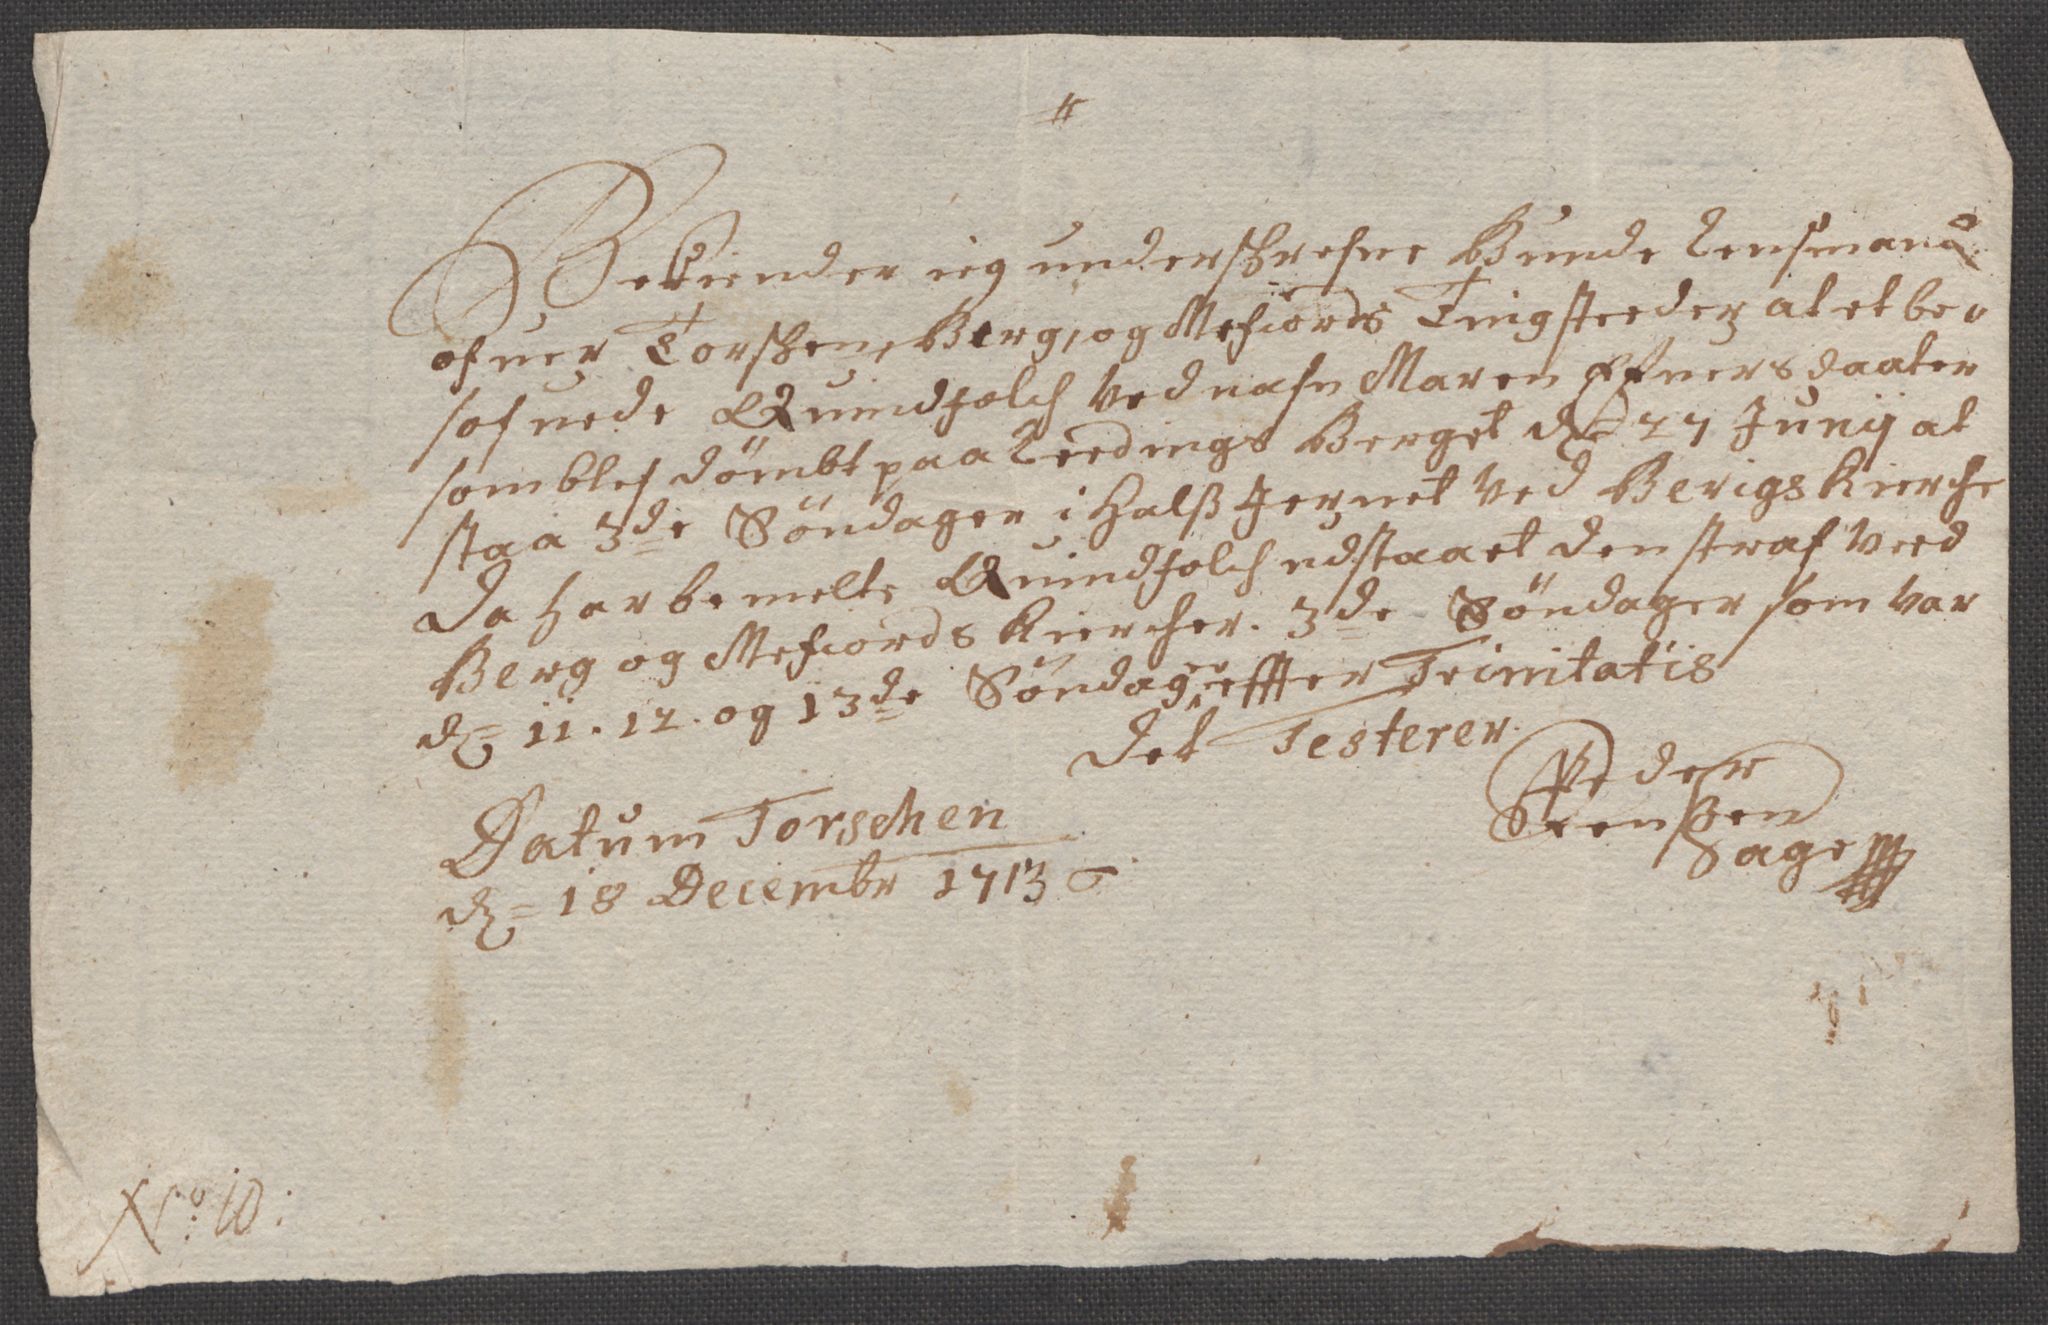 Bekiender ieg underskrefne Bunde Lensmand
ofuer Torsken, Berg, og Mefiords Tingsteeder at et be-
sofuede Quindfolch Ved nafn Maren Efversdaater
som blef dömbt paa Leedings Berget dend 27 Junij at
staa 3de Söndager i Halß Jernet Ved Berigs Kierche
Da har bemelte Quindfolch udstaaet den straf Veed
Berg og Mefiords Kiercher. 3de Söndager som Var
dn 11. 12. og 13de Söndager effter Trinitatis
Det Testerer.
Peder
Steenßen
Sage
Datum Torschen
dn 18 Decembr 1713
No 10: